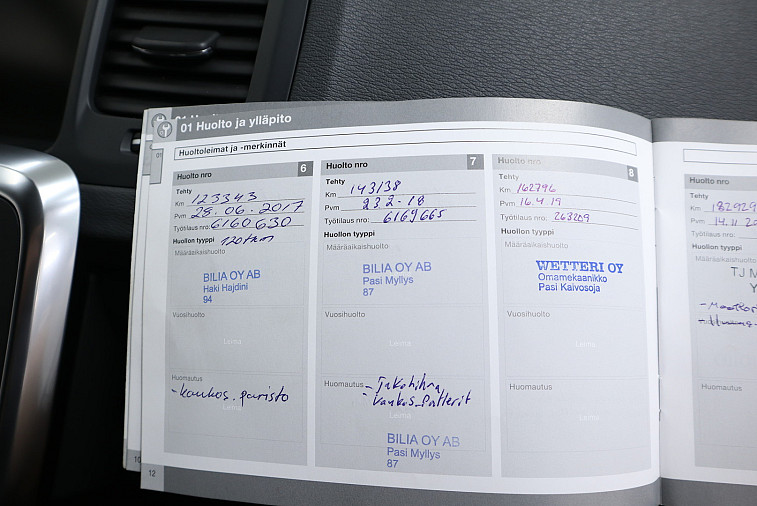 01 Huolto ja ylläpito
Huoltoleimat ja -merkinnät
01
Huolto nro 6
Tehty
Km 123343
Pvm 28.06.2017
Työtilaus nro: 6160630
Huollon tyyppi 120tkm
Määräaikaishuolto
BILIA OY AB
Haki Hajdini
94
Vuosihuolto
Leima
Huomautus
-kaukos.paristo
Leima
12
Huolto nro 7
Tehty
Km 143138
Pvm 232-18
Työtilaus nro: 6169665
Huollon tyyppi
Määräaikaishuolto
BILIA OY AB
Pasi Myllys
87
Vuosihuolto
Leima
Huomautus - Jakohihna
- kaukos.Patterit
Leima
BILIA OY AB
Pasi Myllys
87
Huolto nro 8
Tehty
Km 162796
Pvm 16.4.19
Työtilaus nro: 263209
Huollon tyyppi
Määräaikaishuolto
WETTERI OY
Omamekaanikko
Pasi Kaivosoja
Vuosihuolto
Leima
Huomautus
Leima
10
Huolto nro
Tehty
Km 182929
Pvm 14.11.20
Työtilaus nro:
Huollon tyyppi
Määräaikaishuolto
TJ M
Y
Vuosihuolto
Huomautus